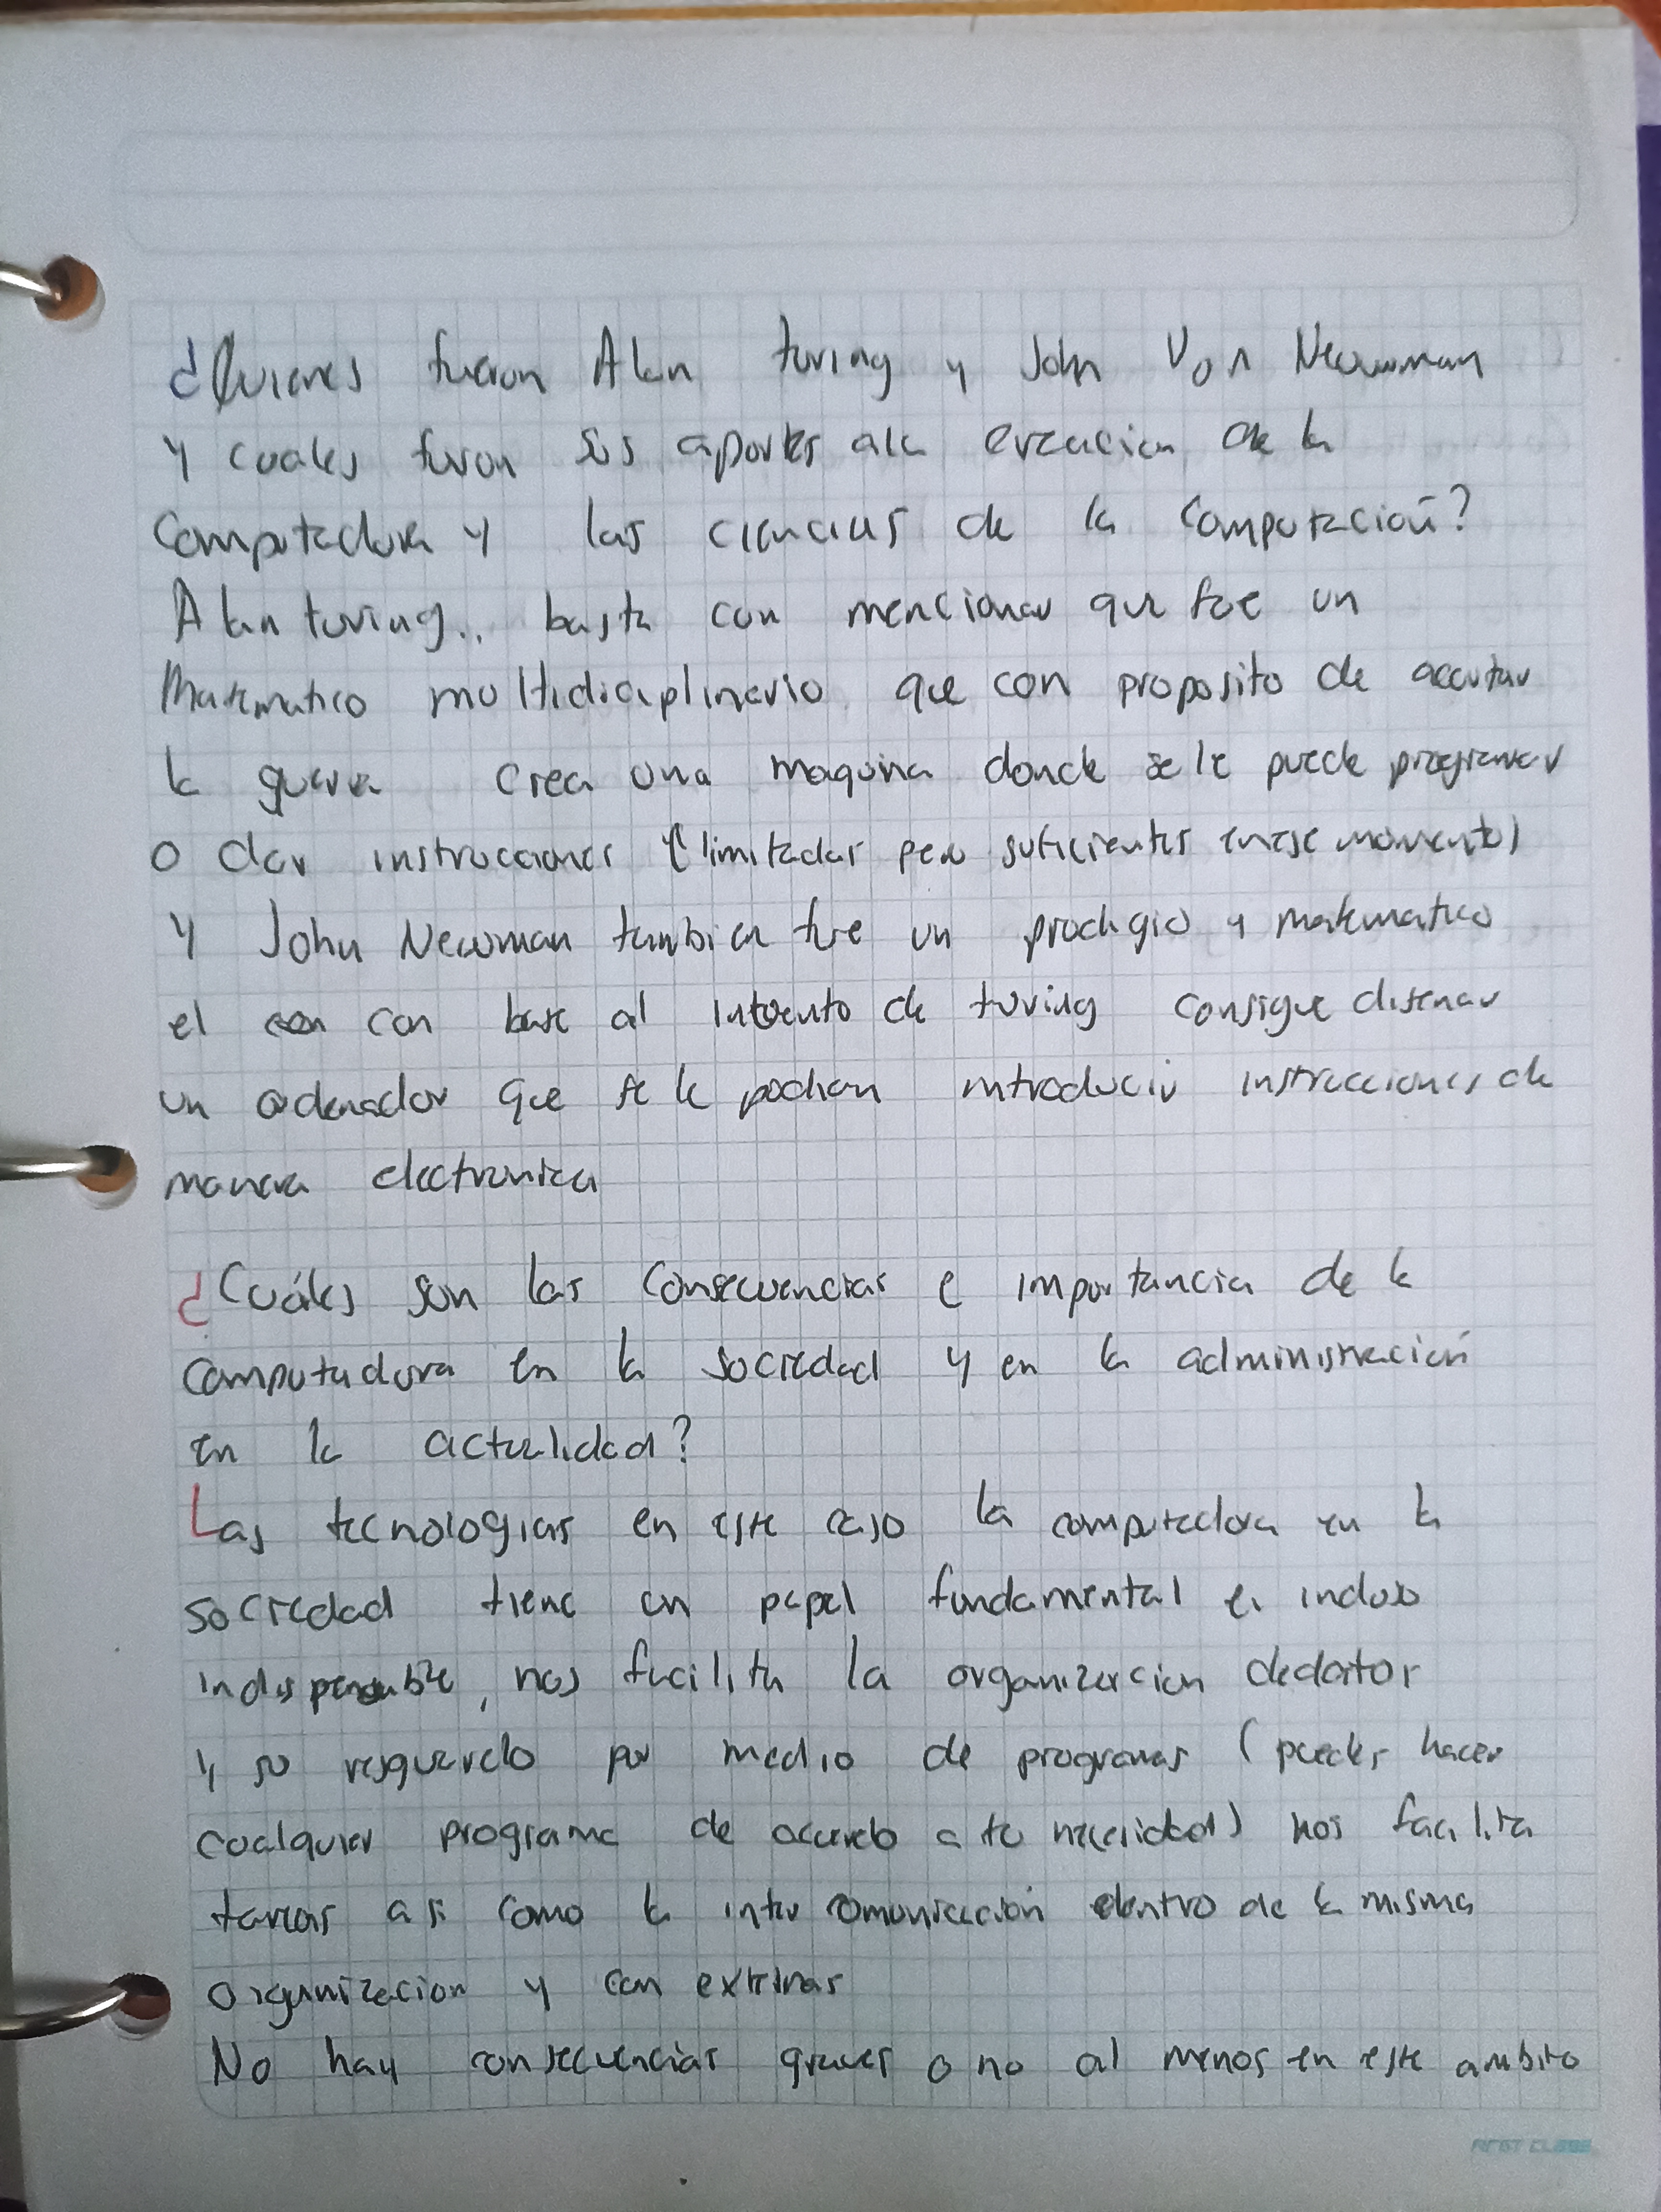 ¿Quienes fueron Alan turing y John Von Newman
y cuales furon sus aportes ala creacion de la
Computadora y las ciencias de la computación?
Alan turing.. basta con mencionar que fue un
Matematico multidiciplinario que con proposito de acortar
la guerra crea una maquina donde se le puede programar
o dar instrucciones (limitadas pero suficientes en ese momento)
y John Newman tambien fue un prodigio y matematico
el con base al intento de turing consigue disenar
un ordenador que se le podian introducir instrucciones de
manera electronica
¿Cuáles son las Consecuencias e importancia de la
computadora en la sociedad y en la administración
en la actualidad?
Las tecnologias en este caso la computadora en la
sociedad tiene un papel fundamental e incluso
indispensable, nos facilita la organizacion de datos
y su resguardo por medio de programas (puedes hacer
cualquier programa de acuerdo a tu necesidad) nos facilita
tareas asi como la inter comunicación dentro de la misma
organizacion y con externas
No hay consecuencias graves o no al menos en este ambito
FIRST CLASS